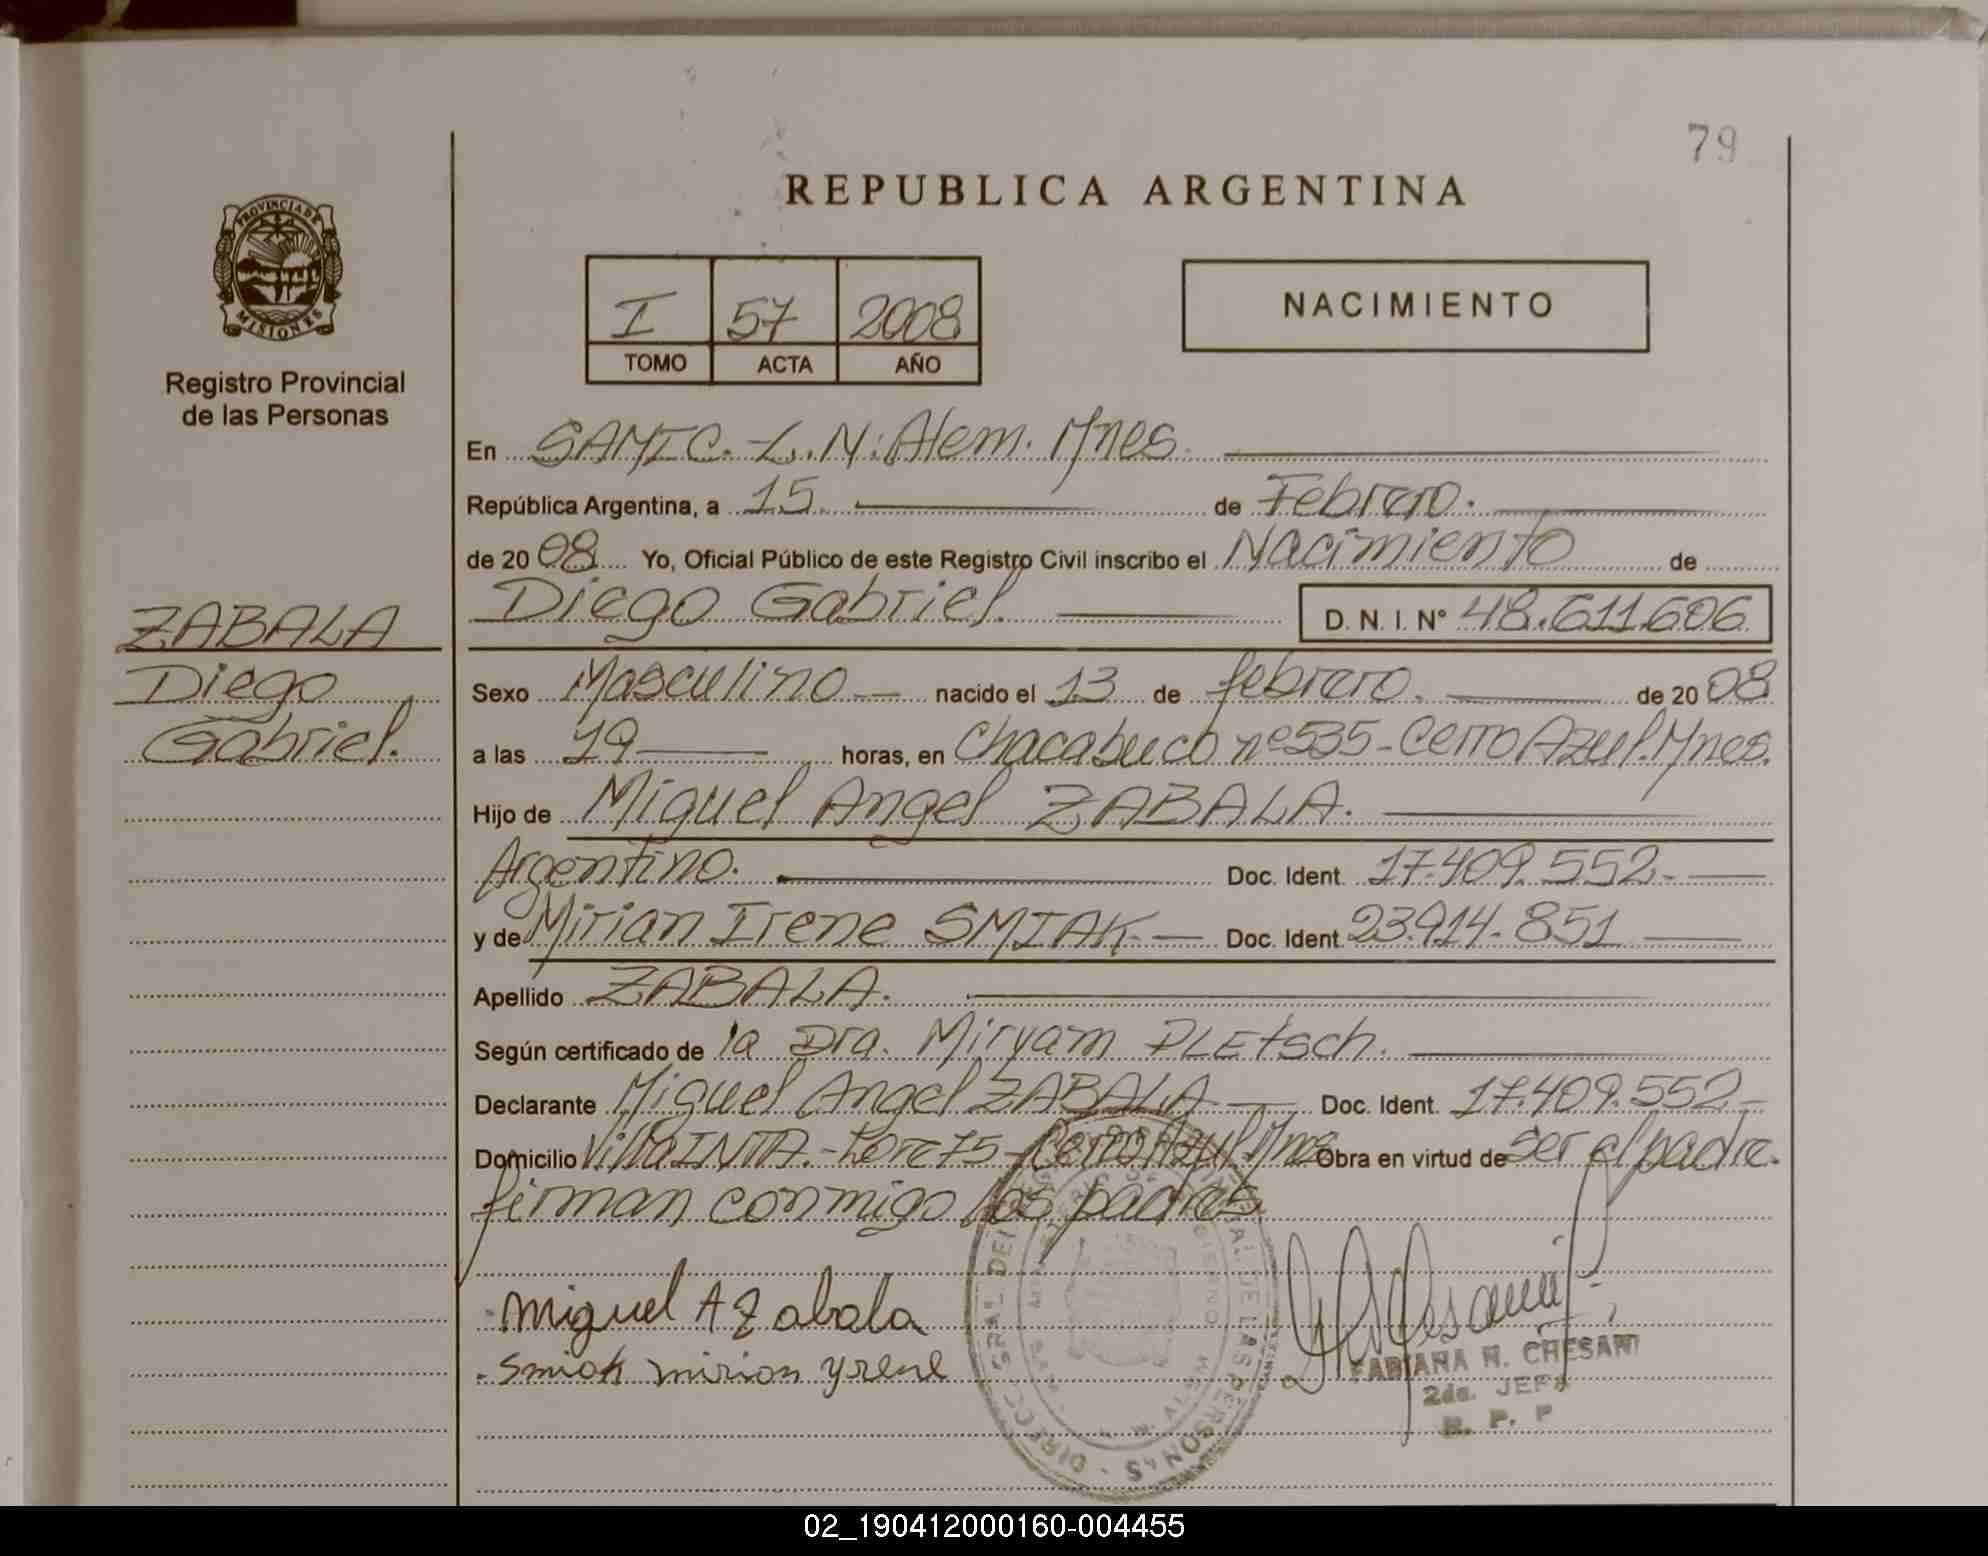 79
REPUBLICA ARGENTINA
PROVINCIA DE
MISIONES
Registro Provincial
de las Personas
I 57 2008
TOMO ACTA AÑO
NACIMIENTO
En SAMIC. L. N. Alem. Mnes.
República Argentina, a 15 de Febrero.
de 20 08 Yo, Oficial Público de este Registro Civil inscribo el Nacimiento de
Diego Gabriel. D. N. I. N° 48.611.606
ZABALA
Diego
Gabriel.
Sexo Masculino nacido el 13 de febrero. de 20 08
a las 19 horas, en Chacabuco nº535-Cerro Azul.Mnes.
Hijo de Miguel Angel ZABALA.
Argentino. Doc. Ident. 17.409.552-
y de Mirian Irene SMIAK- Doc. Ident. 23.914.851
Apellido ZABALA.
Según certificado de la Dra. Miryam PLEtsch.
Declarante Miguel Angel ZABALA Doc. Ident. 17.409.552-
Domicilio Villa INTA.- Cerro Azul. Mnes Obra en virtud de ser el padre.
firman conmigo los padres
Miguel A Zabala
Smiak mirian yrene
FABIANA N. CHESANI
2da. JEFA
R. P. P
02_190412000160-004455